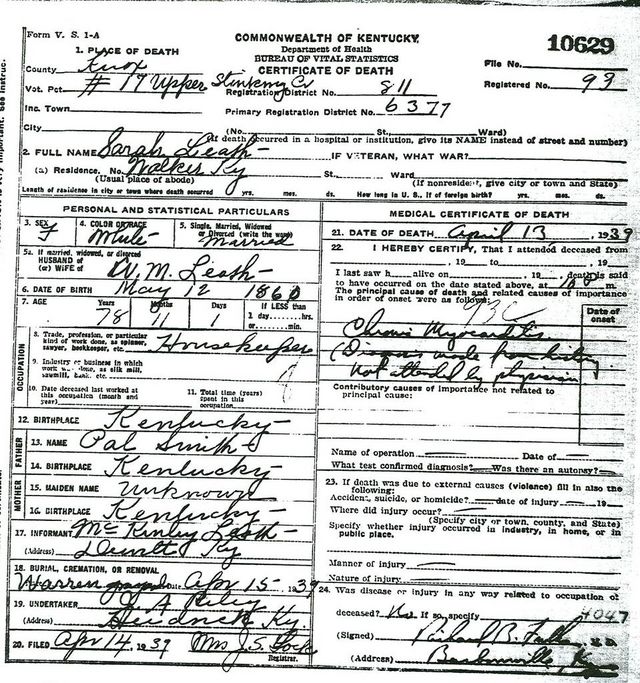 Form V. S. 1-A
COMMONWEALTH OF KENTUCKY
Department of Health
BUREAU OF VITAL STATISTICS
CERTIFICATE OF DEATH
10629
File No.
Registered No. 93
1. PLACE OF DEATH
County Knox
Vot. Pct. #17 Upper Stinking Cr Registration District No. 811
Inc. Town Primary Registration District No. 6377
City (No. St. Ward)
(If death occurred in a hospital or institution, give its NAME instead of street and number)
2. FULL NAME Sarah Leath IF VETERAN, WHAT WAR?
(a) Residence. No. Walker Ky St. Ward
(Usual place of abode) (If nonresident, give city or town and State)
Length of residence in city or town where death occurred yrs. mos. ds. How long in U. S., if of foreign birth? yrs. mos. ds.
PERSONAL AND STATISTICAL PARTICULARS
3. SEX F
4. COLOR OR RACE White
5. Single, Married, Widowed or Divorced (write the word) Married
5a. If married, widowed, or divorced
HUSBAND of
(or) WIFE of W. M. Leath
6. DATE OF BIRTH May 12 1860
7. AGE Years Months Days If LESS than
78 11 1 1 day, hrs.
or min.
OCCUPATION
8. Trade, profession, or particular kind of work done, as spinner, sawyer, bookkeeper, etc. Housekeeper
9. Industry or business in which work was done, as silk mill, sawmill, bank, etc.
10. Date deceased last worked at this occupation (month and year)
11. Total time (years) spent in this occupation
12. BIRTHPLACE Kentucky
FATHER
13. NAME Pal Smith
14. BIRTHPLACE Kentucky
MOTHER
15. MAIDEN NAME Unknown
16. BIRTHPLACE Kentucky
17. INFORMANT McKinley Leath
(Address) Ky
18. BURIAL, CREMATION, OR REMOVAL
Warren Date Apr 15 1939
19. UNDERTAKER Riley
Heidrick Ky.
20. FILED Apr 14, 1939 Mrs J. S.
Registrar.
MEDICAL CERTIFICATE OF DEATH
21. DATE OF DEATH April 13, 1939
22. I HEREBY CERTIFY, That I attended deceased from
, 19 to , 19
I last saw h alive on , 19 , death is said
to have occurred on the date stated above, at m.
The principal cause of death and related causes of importance
in order of onset were as follows:
Date of onset
93C
Chronic Myocarditis
(Diagnosis made from history
Not attended by physician
Contributory causes of importance not related to
principal cause:
Name of operation Date of
What test confirmed diagnosis? Was there an autopsy?
23. If death was due to external causes (violence) fill in also the
following:
Accident, suicide, or homicide? date of injury 19
Where did injury occur?
(Specify city or town, county, and State)
Specify whether injury occurred in industry, in home, or in
public place.
Manner of injury
Nature of injury
24. Was disease or injury in any way related to occupation of
deceased? No If so, specify 4047
(Signed) B. M. D.
(Address) Barbourville, Ky